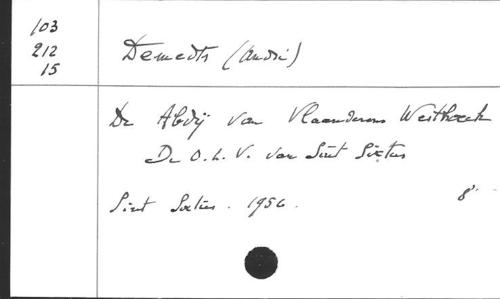 103
212
15
Demedts (André)
De Abdij van Vlaanderens Westhoek
De O.L.V. van Sint Sixtus
Sint Sixtus. 1956. 8°